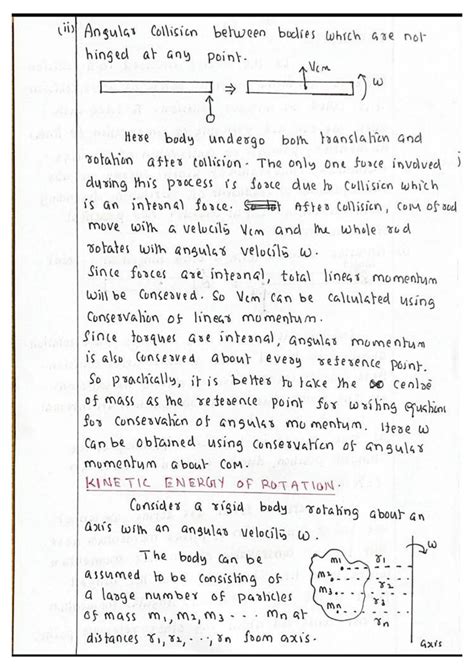 (ii) Angular Collision between bodies which are not
hinged at any point.
Vcm
⇒
ω
Here body undergo both translation and
rotation after collision. The only one force involved
during this process is force due to collision which
is an internal force. After collision, com of rod
move with a velocity Vcm and the whole rod
rotates with angular velocity ω.
Since forces are internal, total linear momentum
will be conserved. So Vcm can be calculated using
conservation of linear momentum.
Since torques are internal, angular momentum
is also conserved about every reference point.
So practically, it is better to take the centre
of mass as the reference point for writing equations
for conservation of angular momentum. Here ω
can be obtained using conservation of angular
momentum about COM.
KINETIC ENERGY OF ROTATION.
Consider a rigid body rotating about an
axis with an angular velocity ω.
The body can be
assumed to be consisting of
a large number of particles
of mass m1, m2, m3 - - - - mn at
distances r1, r2, ---, rn from axis.
ω
m1 r1
m2 r2
m3 r3
mn rn
axis